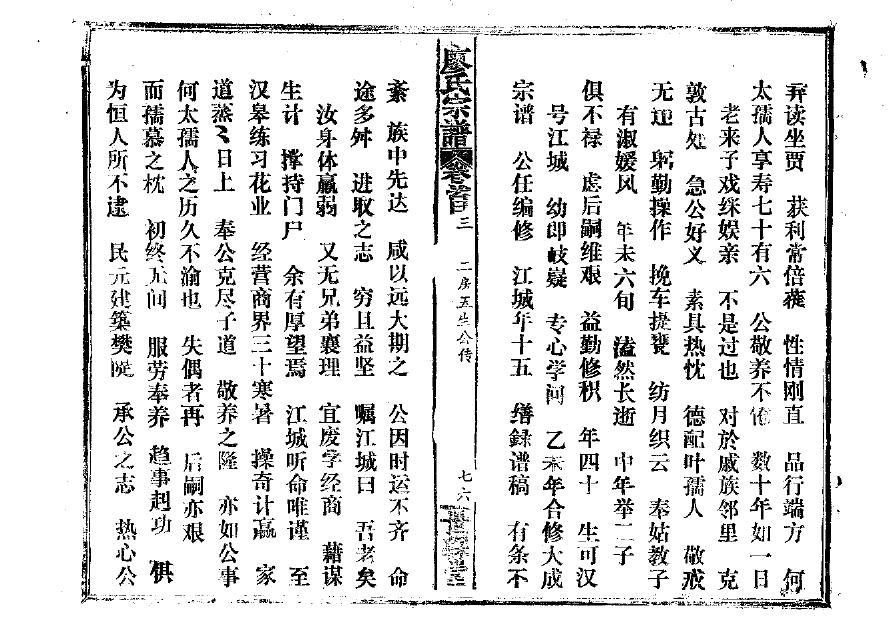 弃读坐贾 获利常倍蓰 性情刚直 品行端方 何
太孺人享寿七十有六 公敬养不怆 数十年如一日
老来子戏綵娱亲 不是过也 对於戚族邻里 克
敦古处 急公好义 素具热忱 德配叶孺人 敬戒
无违 躬勤操作 挽车提甕 纺月织云 奉姑教子
有淑媛风 年未六旬 溘然长逝 中年举二子
俱不禄 虑后嗣维艰 益勤修积 年四十 生可汉
号江城 幼即岐疑 专心学问 乙未年合修大成
宗谱 公任编修 江城年十五 缮録谱稿 有条不
廖氏宗谱 卷首 三 二房五生公传 七六
紊 族中先达 咸以远大期之 公因时运不齐 命
途多舛 进取之志 穷且益坚 嘱江城曰 吾老矣
汝身体羸弱 又无兄弟襄理 宜废学经商 藉谋
生计 撑持门户 余有厚望焉 江城听命唯谨 至
汉皋练习花业 经营商界三十寒暑 操奇计赢 家
道蒸々日上 奉公克尽子道 敬养之隆 亦如公事
何太孺人之历久不渝也 失偶者再 后嗣亦艰
而孺慕之枕 初终无间 服劳奉养 趋事赴功 俱
为恒人所不逮 民元建築樊隄 承公之志 热心公